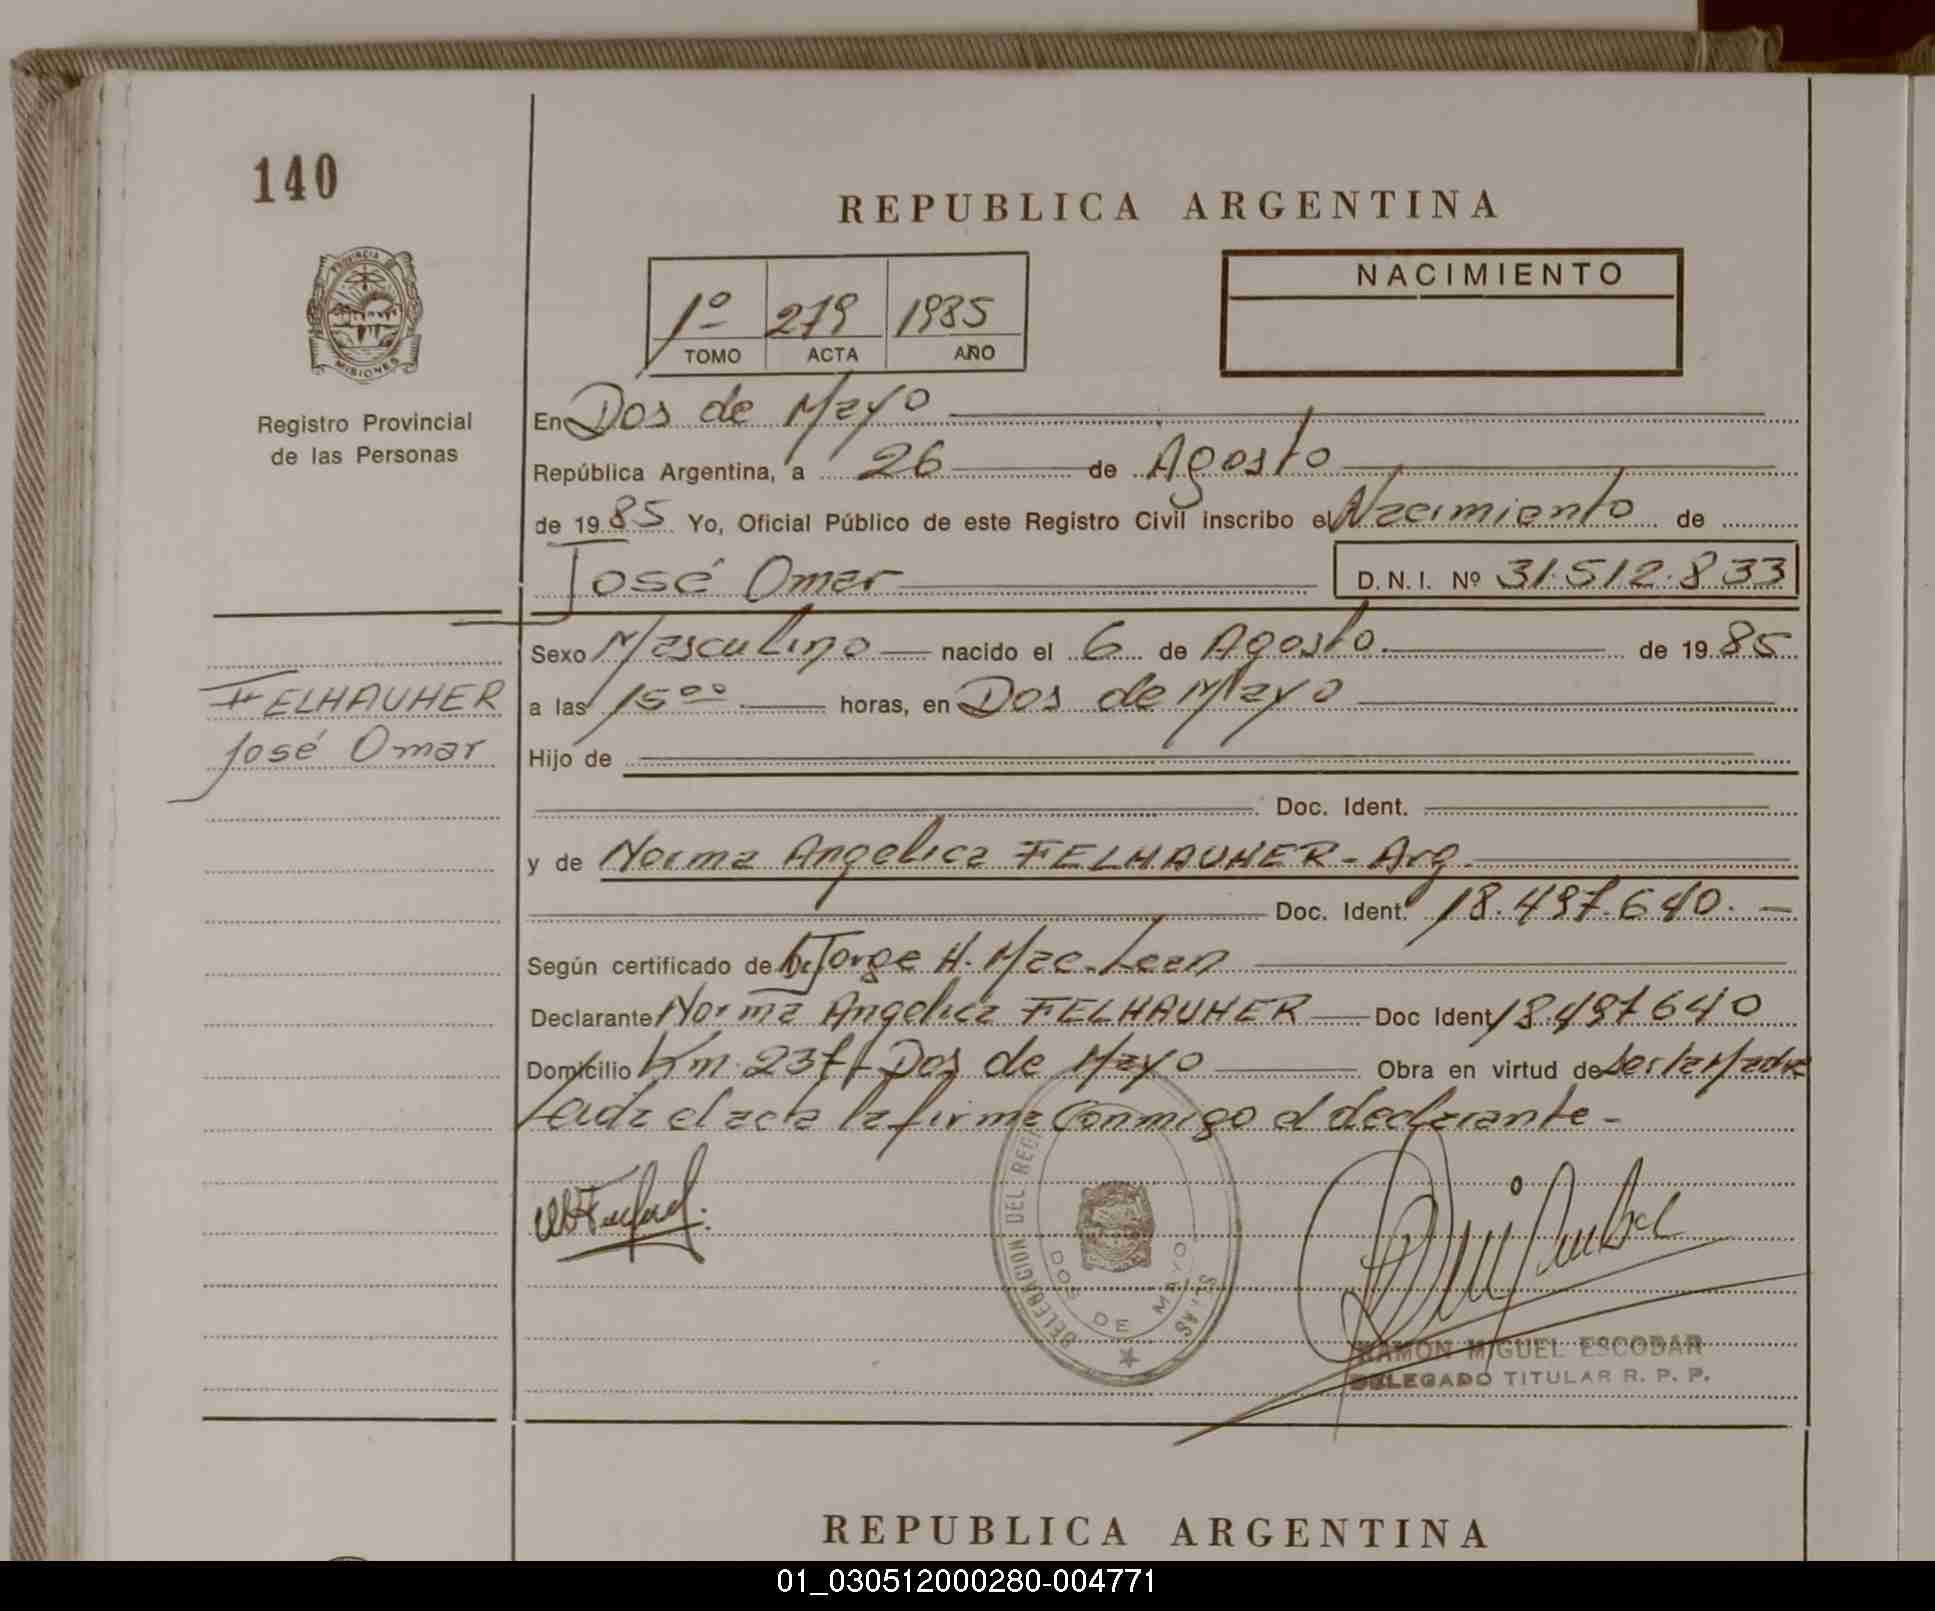 140
REPUBLICA ARGENTINA
PROVINCIA DE
MISIONES
Registro Provincial
de las Personas
1º 279 1985
TOMO ACTA AÑO
NACIMIENTO
En Dos de Mayo
República Argentina, a 26 de Agosto
de 1985 Yo, Oficial Público de este Registro Civil inscribo el Nacimiento de
José Omar D.N.I. Nº 31.512.833
FELHAUHER
José Omar
Sexo Masculino nacido el 6 de Agosto. de 1985
a las 15 00 horas, en Dos de Mayo
Hijo de
Doc. Ident.
y de Norma Angelica FELHAUHER - Arg.
Doc. Ident. 18.497.640. -
Según certificado de Dr Jorge H. Mac.Lean
Declarante Norma Angelica FELHAUHER Doc Ident 18.497640
Domicilio Km. 237 - Dos de Mayo Obra en virtud de Ser la Madre
Leida el acta la firma Conmigo el declarante -
DELEGACION DEL
DOS DE MAYO
RAMON MIGUEL ESCOBAR
DELEGADO TITULAR R. P. P.
REPUBLICA ARGENTINA
01_030512000280-004771